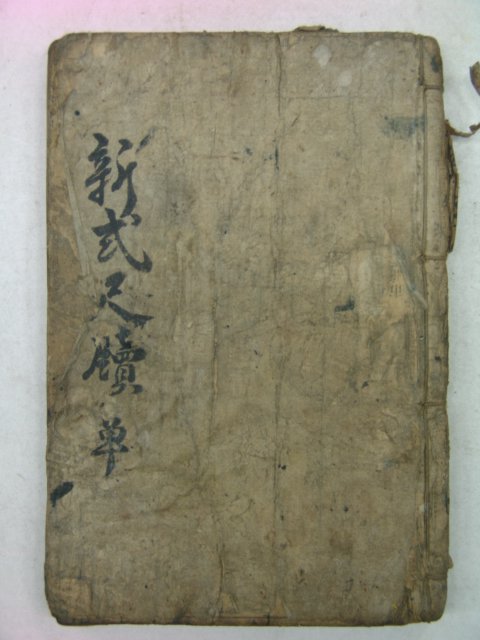 新式尺牘 単